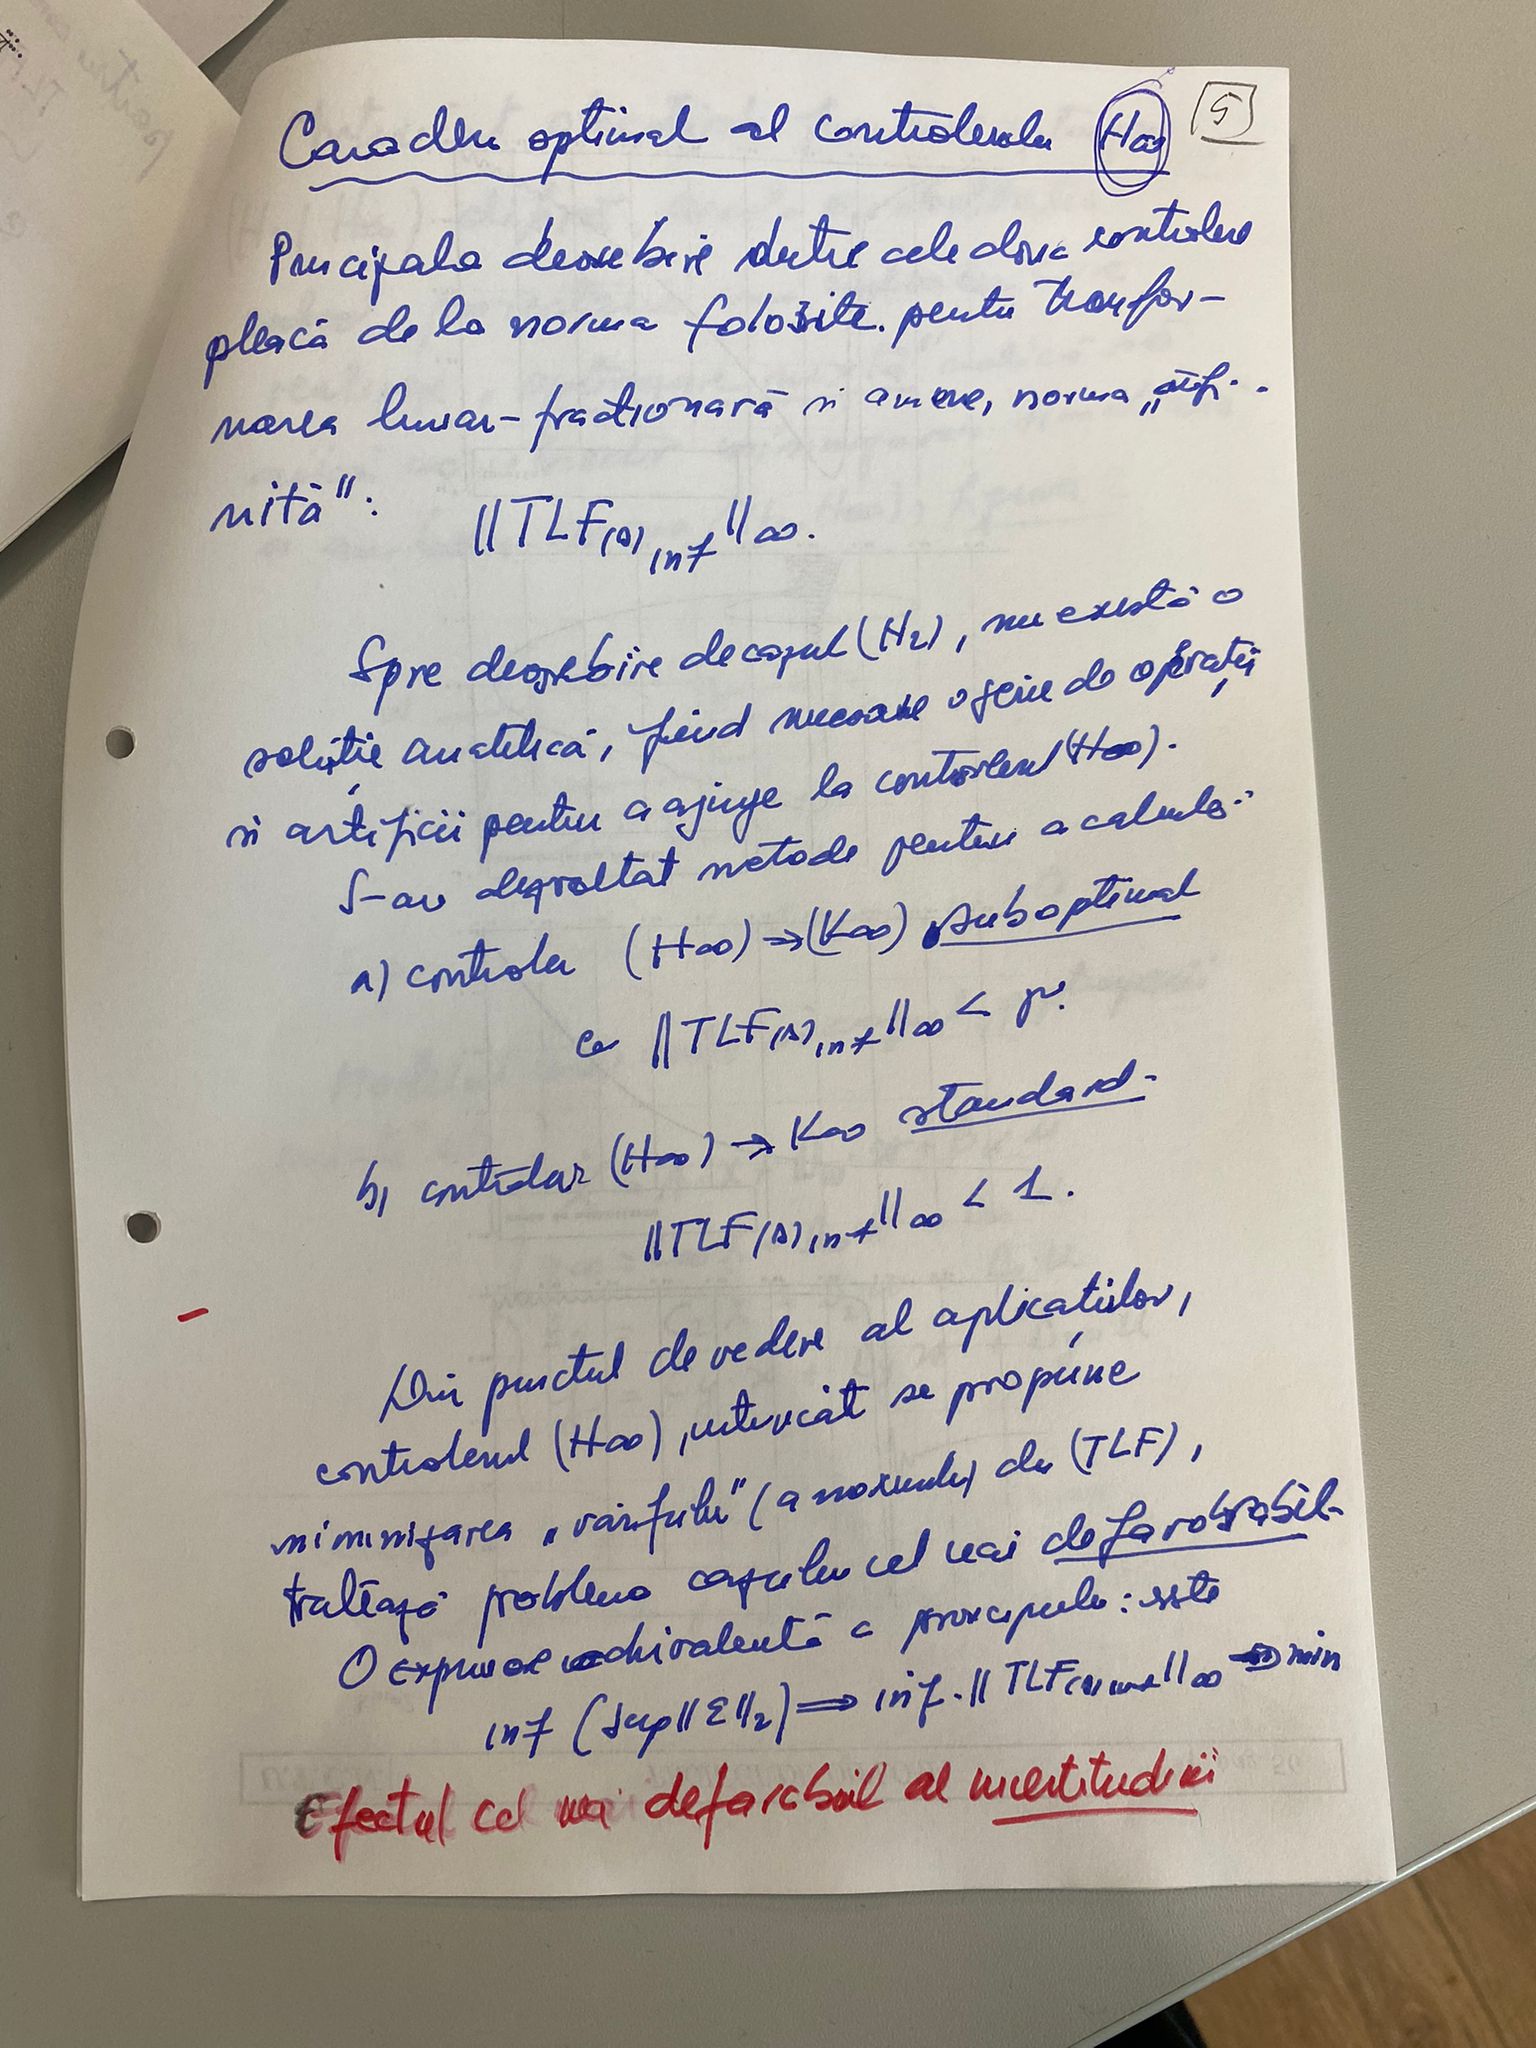 5
Caracterul optimal al controlerului H∞
Principala deosebire dintre cele două controlere
pleacă de la norma folosite. pentru transfor-
marea liniar-fracționară și anume, norma „infi-
nită":
||TLF(s)inf||∞.
Spre deosebire de cazul (H2), nu există o
soluție analitică, fiind necesare o serie de operații
și artificii pentru a ajunge la controlerul (H∞).
S-au dezvoltat metode pentru a calcula:
a) controler (H∞) → (K∞) suboptimal
cu ||TLF(s)inf||∞ < γ.
b) controler (H∞) → K∞ standard.
||TLF(s)inf||∞ < 1.
Din punctul de vedere al aplicațiilor,
controlerul (H∞), întrucât se propune
minimizarea „vârfului" (a maximului) din (TLF),
tratează problema cazului cel mai defavorabil.
O expresie echivalentă a principiului: este
inf (sup||ε||2) ⇒ inf. || TLF(s)inf||∞ ⇒ min
Efectul cel mai defavorabil al incertitudinii